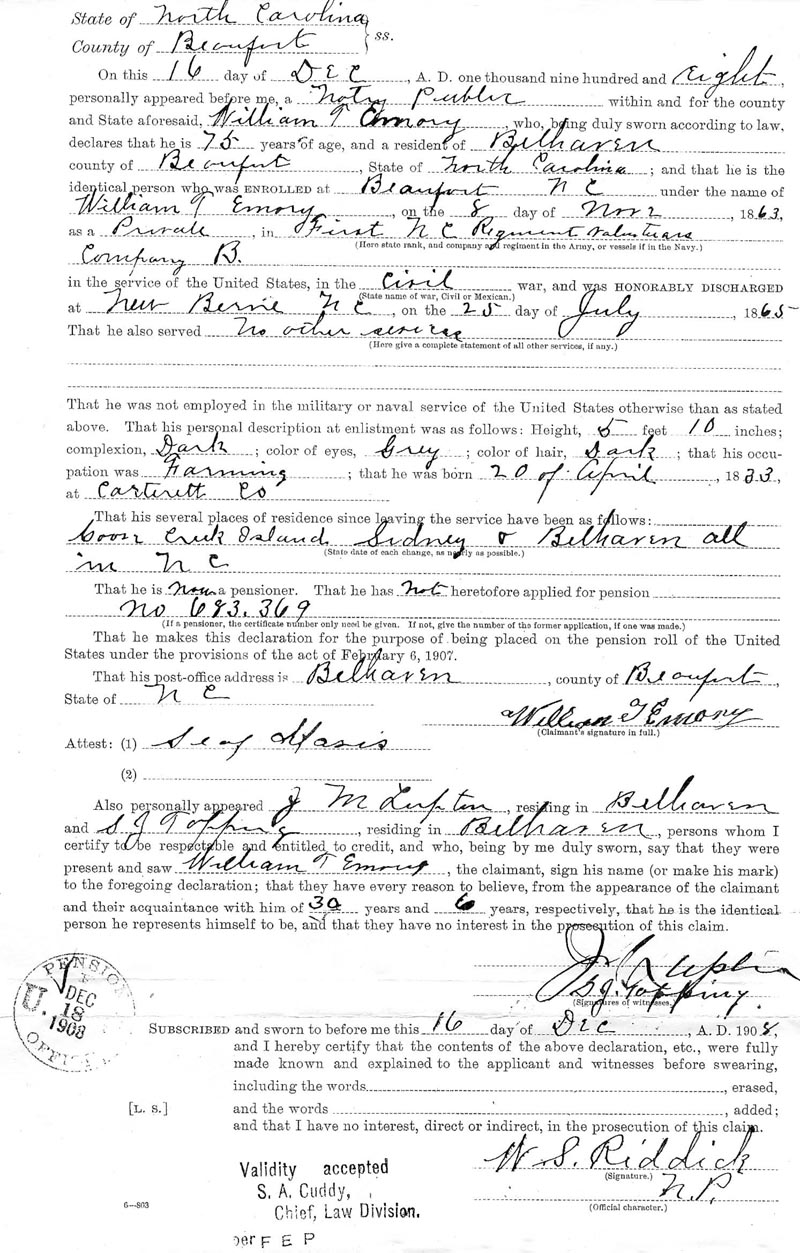 State of North Carolina
County of Beaufort } ss.
On this 16 day of DEC, A. D. one thousand nine hundred and eight,
personally appeared before me, a Notry Public within and for the county
and State aforesaid, William T Emory, who, being duly sworn according to law,
declares that he is 75 years of age, and a resident of Belhaven
county of Beaufort, State of North Carolina; and that he is the
identical person who was ENROLLED at Beaufort N C under the name of
William T Emory, on the 8 day of Nov, 1863,
as a Private, in First N C Regiment Voluntiars
(Here state rank, and company and regiment in the Army, or vessels if in the Navy.)
Company B.
in the service of the United States, in the Civil war, and was HONORABLY DISCHARGED
(State name of war, Civil or Mexican.)
at New Berne N C, on the 25 day of July, 1865
That he also served No other services
(Here give a complete statement of all other services, if any.)
That he was not employed in the military or naval service of the United States otherwise than as stated
above. That his personal description at enlistment was as follows: Height, 5 feet 10 inches;
complexion, Dark; color of eyes, Grey; color of hair, Dark; that his occu-
pation was Farming; that he was born 20 of April, 1833,
at Carterett Co
That his several places of residence since leaving the service have been as follows:
Goose Creek Island Sidney & Belhaven all
(State date of each change, as nearly as possible.)
in N C
That he is Now a pensioner. That he has Not heretofore applied for pension
No 683.369
(If a pensioner, the certificate number only need be given. If not, give the number of the former application, if one was made.)
That he makes this declaration for the purpose of being placed on the pension roll of the United
States under the provisions of the act of February 6, 1907.
That his post-office address is Belhaven, county of Beaufort,
State of N C
William T Emory
(Claimant's signature in full.)
Attest: (1)
(2)
Also personally appeared J M Lupton, residing in Belhaven
and S J Topping, residing in Belhaven, persons whom I
certify to be respectable and entitled to credit, and who, being by me duly sworn, say that they were
present and saw William T Emory, the claimant, sign his name (or make his mark)
to the foregoing declaration; that they have every reason to believe, from the appearance of the claimant
and their acquaintance with him of 30 years and 6 years, respectively, that he is the identical
person he represents himself to be, and that they have no interest in the prosecution of this claim.
J M Lupton
S. J. Topping.
(Signatures of witnesses.)
U. S. PENSION OFFICE
DEC
18
1908
SUBSCRIBED and sworn to before me this 16 day of DEC, A. D. 1908,
and I hereby certify that the contents of the above declaration, etc., were fully
made known and explained to the applicant and witnesses before swearing,
including the words, erased,
[L. S.] and the words, added;
and that I have no interest, direct or indirect, in the prosecution of this claim.
W. S. Riddick
(Signature.)
N.P.
(Official character.)
Validity accepted
S. A. Cuddy,
Chief, Law Division.
per F E P
6—803